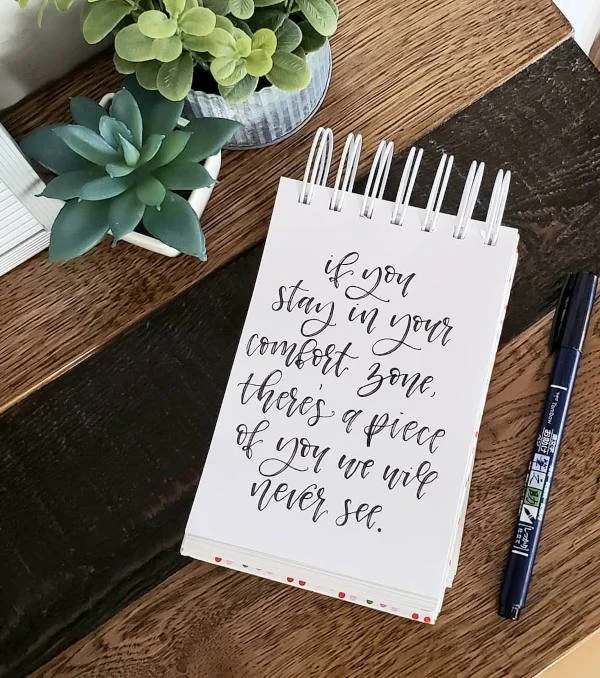 if you
stay in your
comfort zone,
there's a piece
of you we will
never see.
Tombow